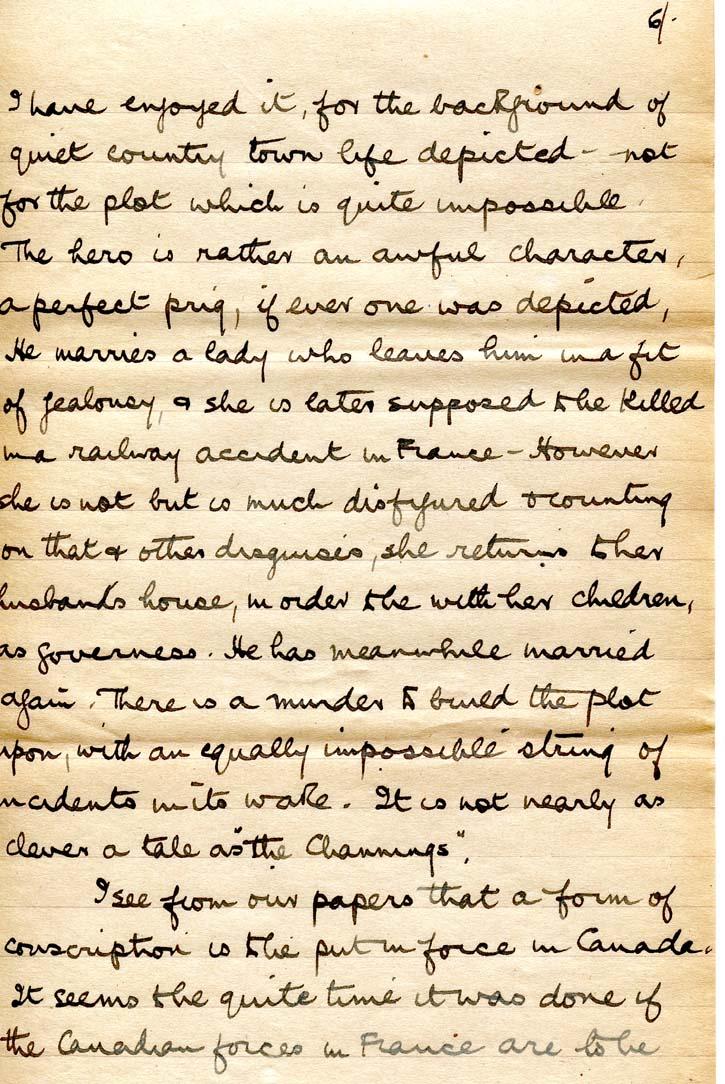 6/.
I have enjoyed it, for the background of
quiet country town life depicted - not
for the plot which is quite impossible.
The hero is rather an awful character,
a perfect prig, if ever one was depicted,
He marries a lady who leaves him in a fit
of jealousy, & she is later supposed to be killed
in a railway accident in France - However
she is not but is much disfigured & counting
on that & other disguises, she returns to her
husband's house, in order to be with her children,
as governess. He has meanwhile married
again. There is a murder to build the plot
upon, with an equally impossible string of
incidents in its wake. It is not nearly as
clever a tale as "the Channings".
I see from our papers that a form of
conscription is to be put in force in Canada.
It seems to be quite time it was done if
the Canadian forces in France are to be